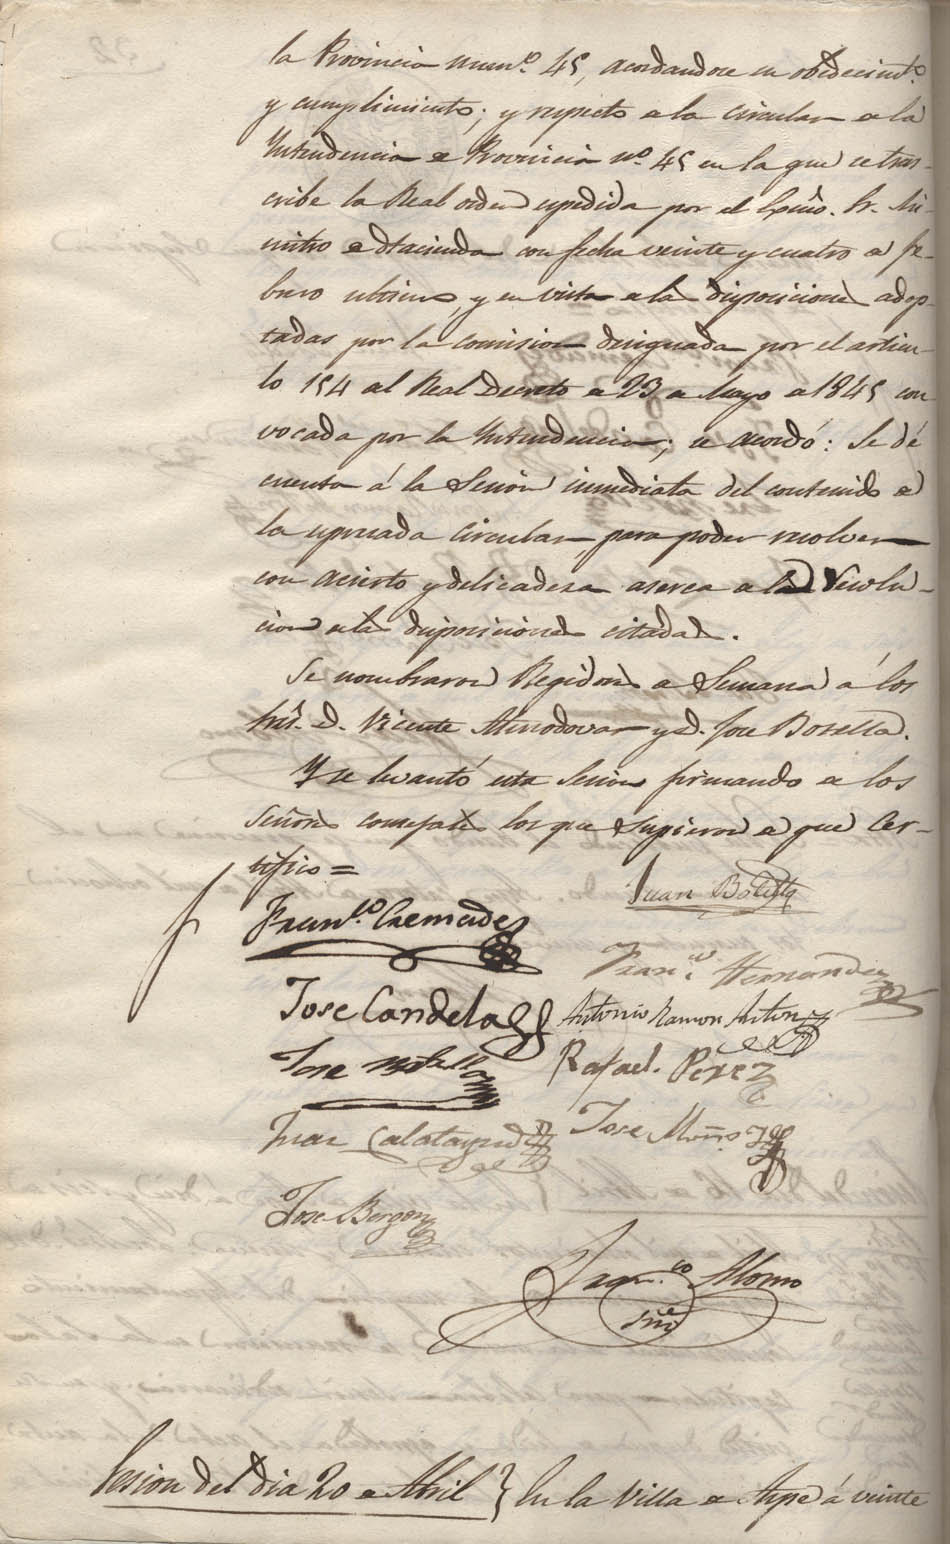 la Provincia num.º 45, acordandose su obedecim.to
y cumplimiento; y respecto a la circular de la
Yntendencia de Provincia nº 45 en la que se tras-
cribe la Real orden espedida por el Exmo. Sr. Mi-
nistro de Hacienda con fecha veinte y cuatro de fe-
brero ultimo, y en vista de las disposiciones adop-
tadas por la comision designada por el articu-
lo 154 del Real Decreto de 23 de Mayo de 1845 con-
vocada por la Yntendencia; se acordó: Se dé
cuenta á la Sesion inmediata del contenido de
la espresada Circular, para poder resolver
con acierto y delicadeza acerca de la Resolu-
cion de las disposiciones citadas.
Se nombraron Regidores de Semana á los
Sres. D. Vicente Almodovar y D. Jose Botella.
Y se levantó esta Sesion firmando de los
Señores concejales los que supieron de que Cer-
tifico =
Juan Botella
Fran.co Cremades
Fran.co Hernandez
Jose Candela
Antonio Ramon Anton
Jose Botella
Rafael Perez
Juan Calatayud
Jose Muños
Jose Bergon
Fran.co Alonso
Srio
Sesion del dia 20 de Abril } En la Villa de Aspe á veinte